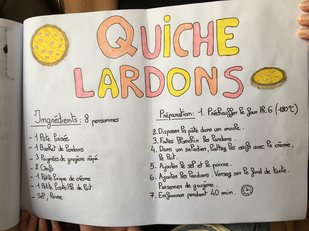 QUICHE
LARDONS
Ingrédients: 8 personnes
- 1 Pâte brisée
- 1 Barquet de lardons
- 3 Poignées de gruyère râpé
- 8 Oeufs
- 1 Petite brique de crème
- 1 Petite bouteille de lait
- Sel, Poivre
Préparation: 1. Préchauffer le four th.6 (180°C)
2. Disposer la pâte dans un moule.
3. Faites blanchir les lardons.
4. Dans un saladier, battez les oeufs avec la crème,
le lait.
5. Ajoutez le sel et le poivre.
6. Ajoutez les lardons. Versez sur le fond de tarte.
Parsemez de gruyère.
7. Enfourner pendant 40 min.